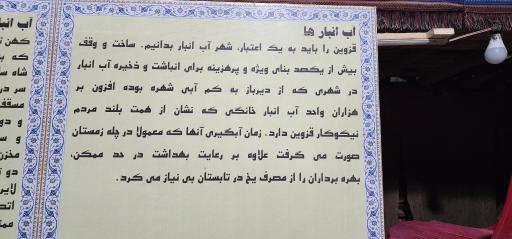 آب انبار ها
قزوین را باید به یک اعتبار، شهر آب انبار بدانیم. ساخت و وقف
بیش از یکصد بنای ویژه و پرهزینه برای انباشت و ذخیره آب انبار
در شهری که از دیرباز به کم آبی شهره بوده افزون بر
هزاران واحد آب انبار خانگی که نشان از همت بلند مردم
نیکوکار قزوین دارد. زمان آبگیری آنها که معمولا در چله زمستان
صورت می گرفت علاوه بر رعایت بهداشت در حد ممکن،
بهره برداران را از مصرف یخ در تابستان بی نیاز می کرد.
آب انبار
کهن ت
که ب
شاه س
سر در
مسقف
و دو
و س
مخزن
دو
لایر
اتص
ممت